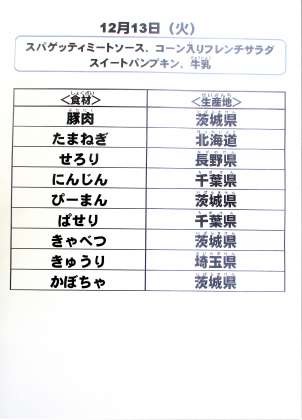 12月13日（火）
スパゲッティミートソース、コーン入りフレンチサラダ
スイートパンプキン、牛乳
＜食材＞ ＜生産地＞
豚肉 茨城県
たまねぎ 北海道
せろり 長野県
にんじん 千葉県
ぴーまん 茨城県
ぱせり 千葉県
きゃべつ 茨城県
きゅうり 埼玉県
かぼちゃ 茨城県